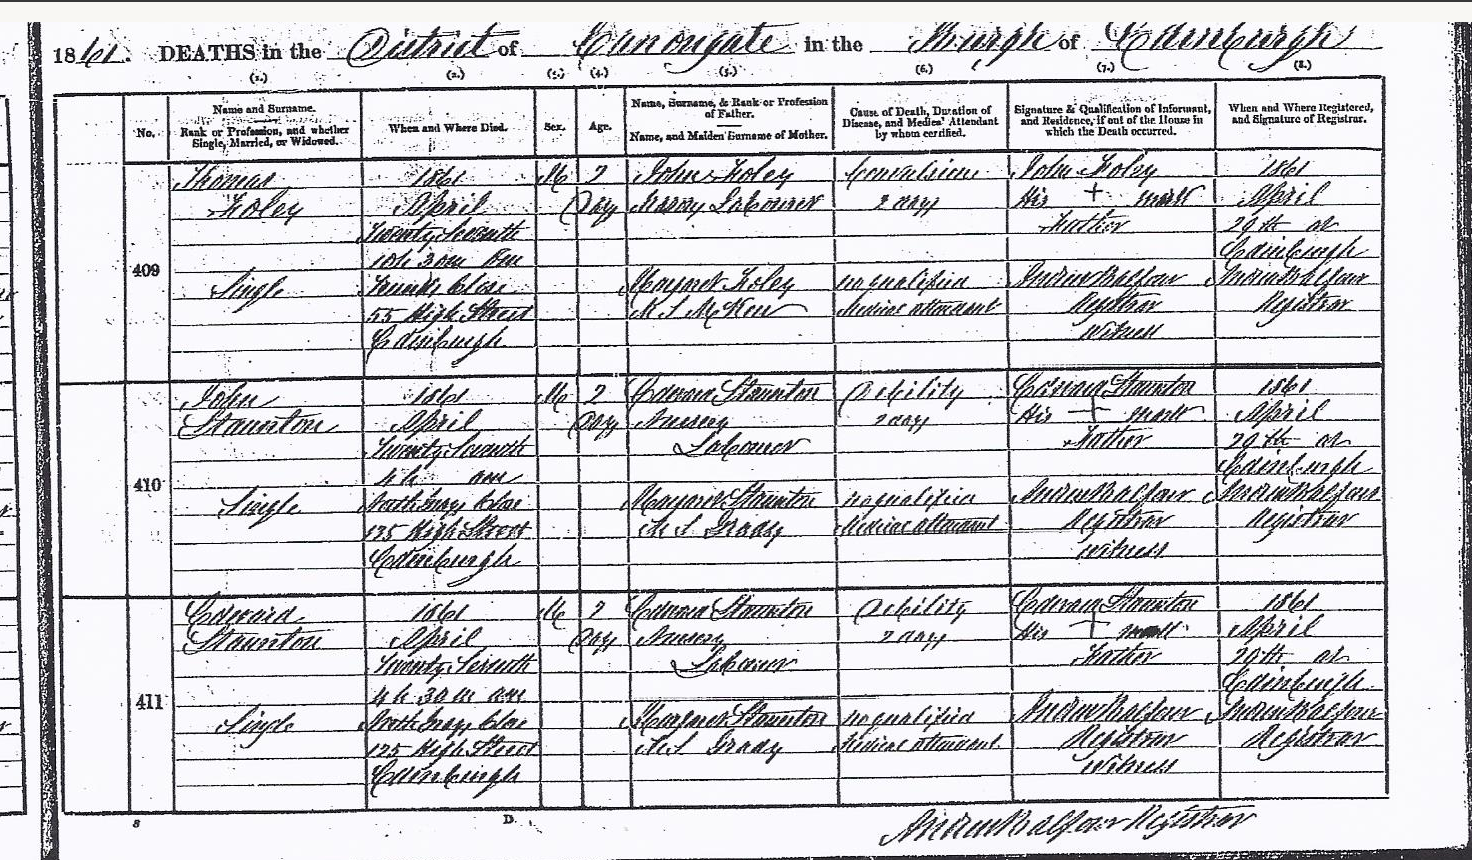 1861. DEATHS in the District of Canongate in the Burgh of Edinburgh
(1.) (2.) (3.) (4.) (5.) (6.) (7.) (8.)
No.
Name and Surname.
Rank or Profession, and whether
Single, Married, or Widowed.
When and Where Died.
Sex.
Age.
Name, Surname, & Rank or Profession
of Father.
Name, and Maiden Surname of Mother.
Cause of Death, Duration of
Disease, and Medical Attendant
by whom certified.
Signature & Qualification of Informant,
and Residence, if out of the House in
which the Death occurred.
When and Where Registered,
and Signature of Registrar.
409
Thomas
Foley
Single
1861
April
Twenty Seventh
10h 30m
Close
55 High Street
Edinburgh
M
2
Days
John Foley
Labourer
Margaret Foley
M.S.
Convulsions
2 days
no qualified
Medical attendant
John Foley
His + mark
Father
Andrew Balfour
Registrar
witness
1861
April
29th at
Edinburgh
Andrew Balfour
Registrar
410
John
Staunton
Single
1861
April
Twenty Seventh
4h am
North Grays Close
125 High Street
Edinburgh
M
2
Days
Edward Staunton
Labourer
Margaret Staunton
M.S. Grady
Debility
2 days
no qualified
Medical attendant
Edward Staunton
His + mark
Father
Andrew Balfour
Registrar
witness
1861
April
29th at
Edinburgh
Andrew Balfour
Registrar
411
Edward
Staunton
Single
1861
April
Twenty Seventh
4h 30m am
North Grays Close
125 High Street
Edinburgh
M
2
Days
Edward Staunton
Labourer
Margaret Staunton
M.S. Grady
Debility
2 days
no qualified
Medical attendant
Edward Staunton
His + mark
Father
Andrew Balfour
Registrar
witness
1861
April
29th at
Edinburgh
Andrew Balfour
Registrar
8
D.
Andrew Balfour Registrar